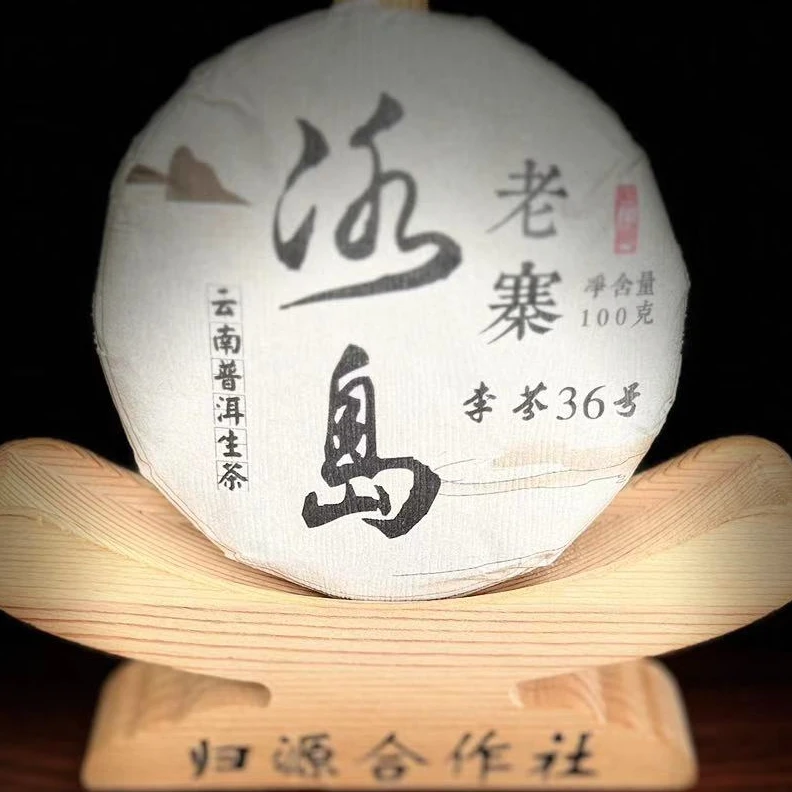 冰岛
老寨
净含量
100克
李芬36号
云南普洱生茶
归源合作社